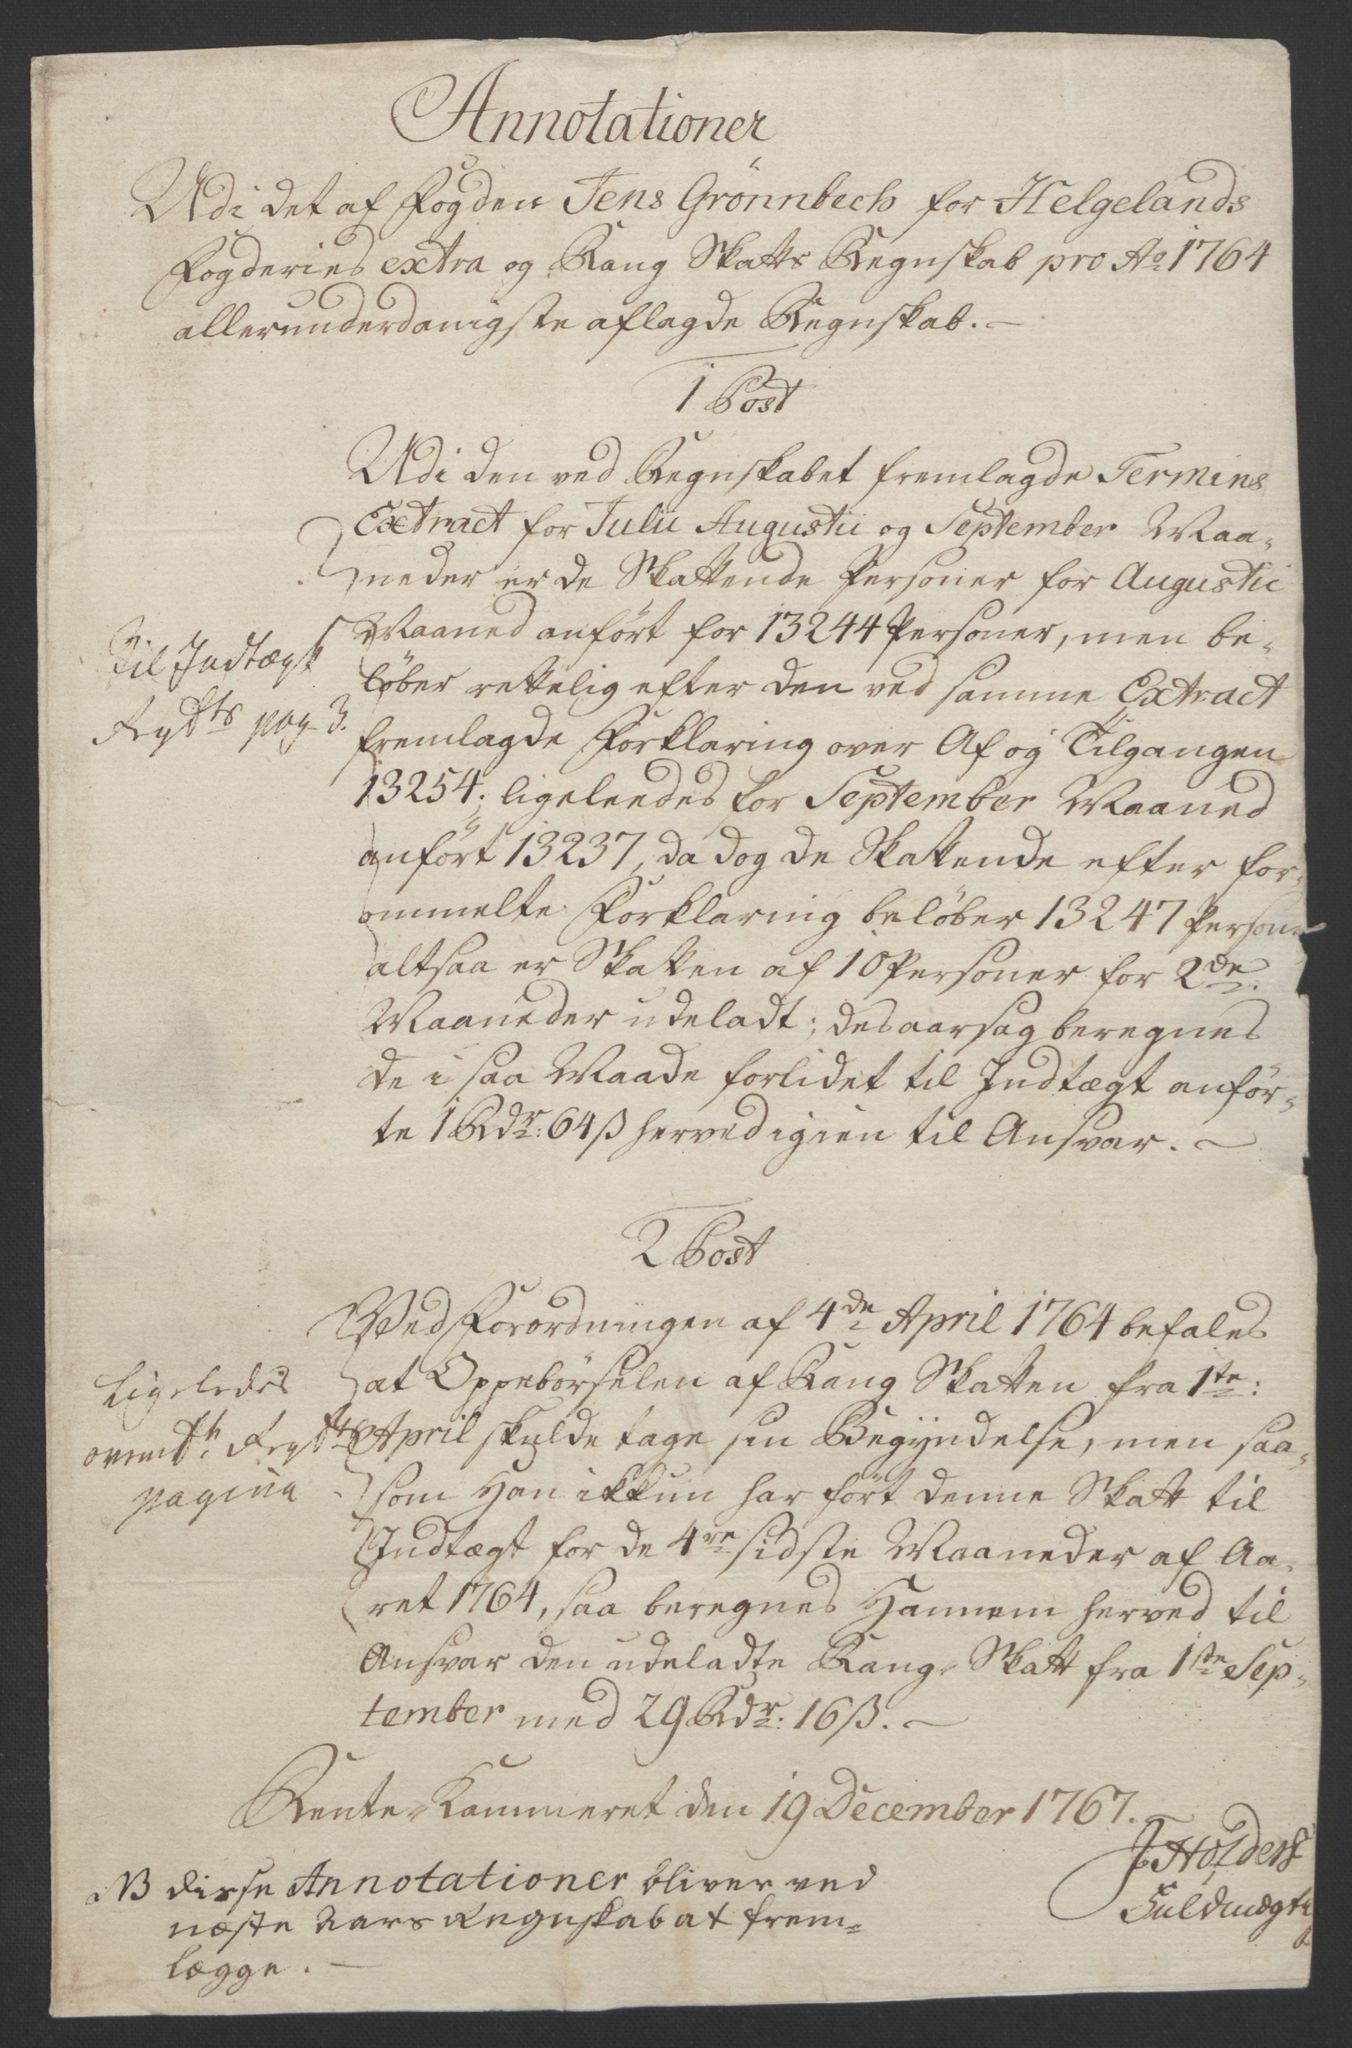 Annotationer
Udi det af Fogden Jens Grönnbech for Helgelands
Fogderies extra og Rang Skatts Regnskab pro Ao 1764
allerunderdanigste aflagde Regnskab. –
1 Post
Udi den ved Regnskabet fremlagde Termins
Extract for Julii Augustii og September Maa-
neder er de Skattende Personer for Augustii
Maaned anfört for 13244 Personer, men be-
löber rettelig efter den ved samme Extract
fremlagde Forklaring over Af og Tilgangen
13254; ligeleedes for September Maaned
anfört 13237, da dog de Skattende efter for-
ommelte Forklaring belöber 13247 Persone
altsaa er Skatten af 10 Personer for 2de
Maaneder udeladt; desaarsag beregnes
de i saa Maade forlidet til Indtægt anför-
te 1 Rdr: 64 ß herved igien til Ansvar. –
Til Indtægt
pag 3.
2 Post
Ved Forordningen af 4de April 1764 befales
at Oppebörselen af Rang Skatten fra 1te:
April skulde tage sin Begyndelse, men saa-
som Han ikkun har fört denne Skatt til
Indtægt for de 4re sidste Maaneder af Aa-
ret 1764, saa beregnes Hannem herved til
Ansvar den udeladte Rang Skatt fra 1ste Sep-
tember med 29 Rdr: 16 ß. –
Ligeledes
pagina
Rente-Kammeret den 19 December 1767.
J Holders
Fuldmægti
NB disse Annotationer bliver ved
næste Aars Regnskab at frem-
lægge. –